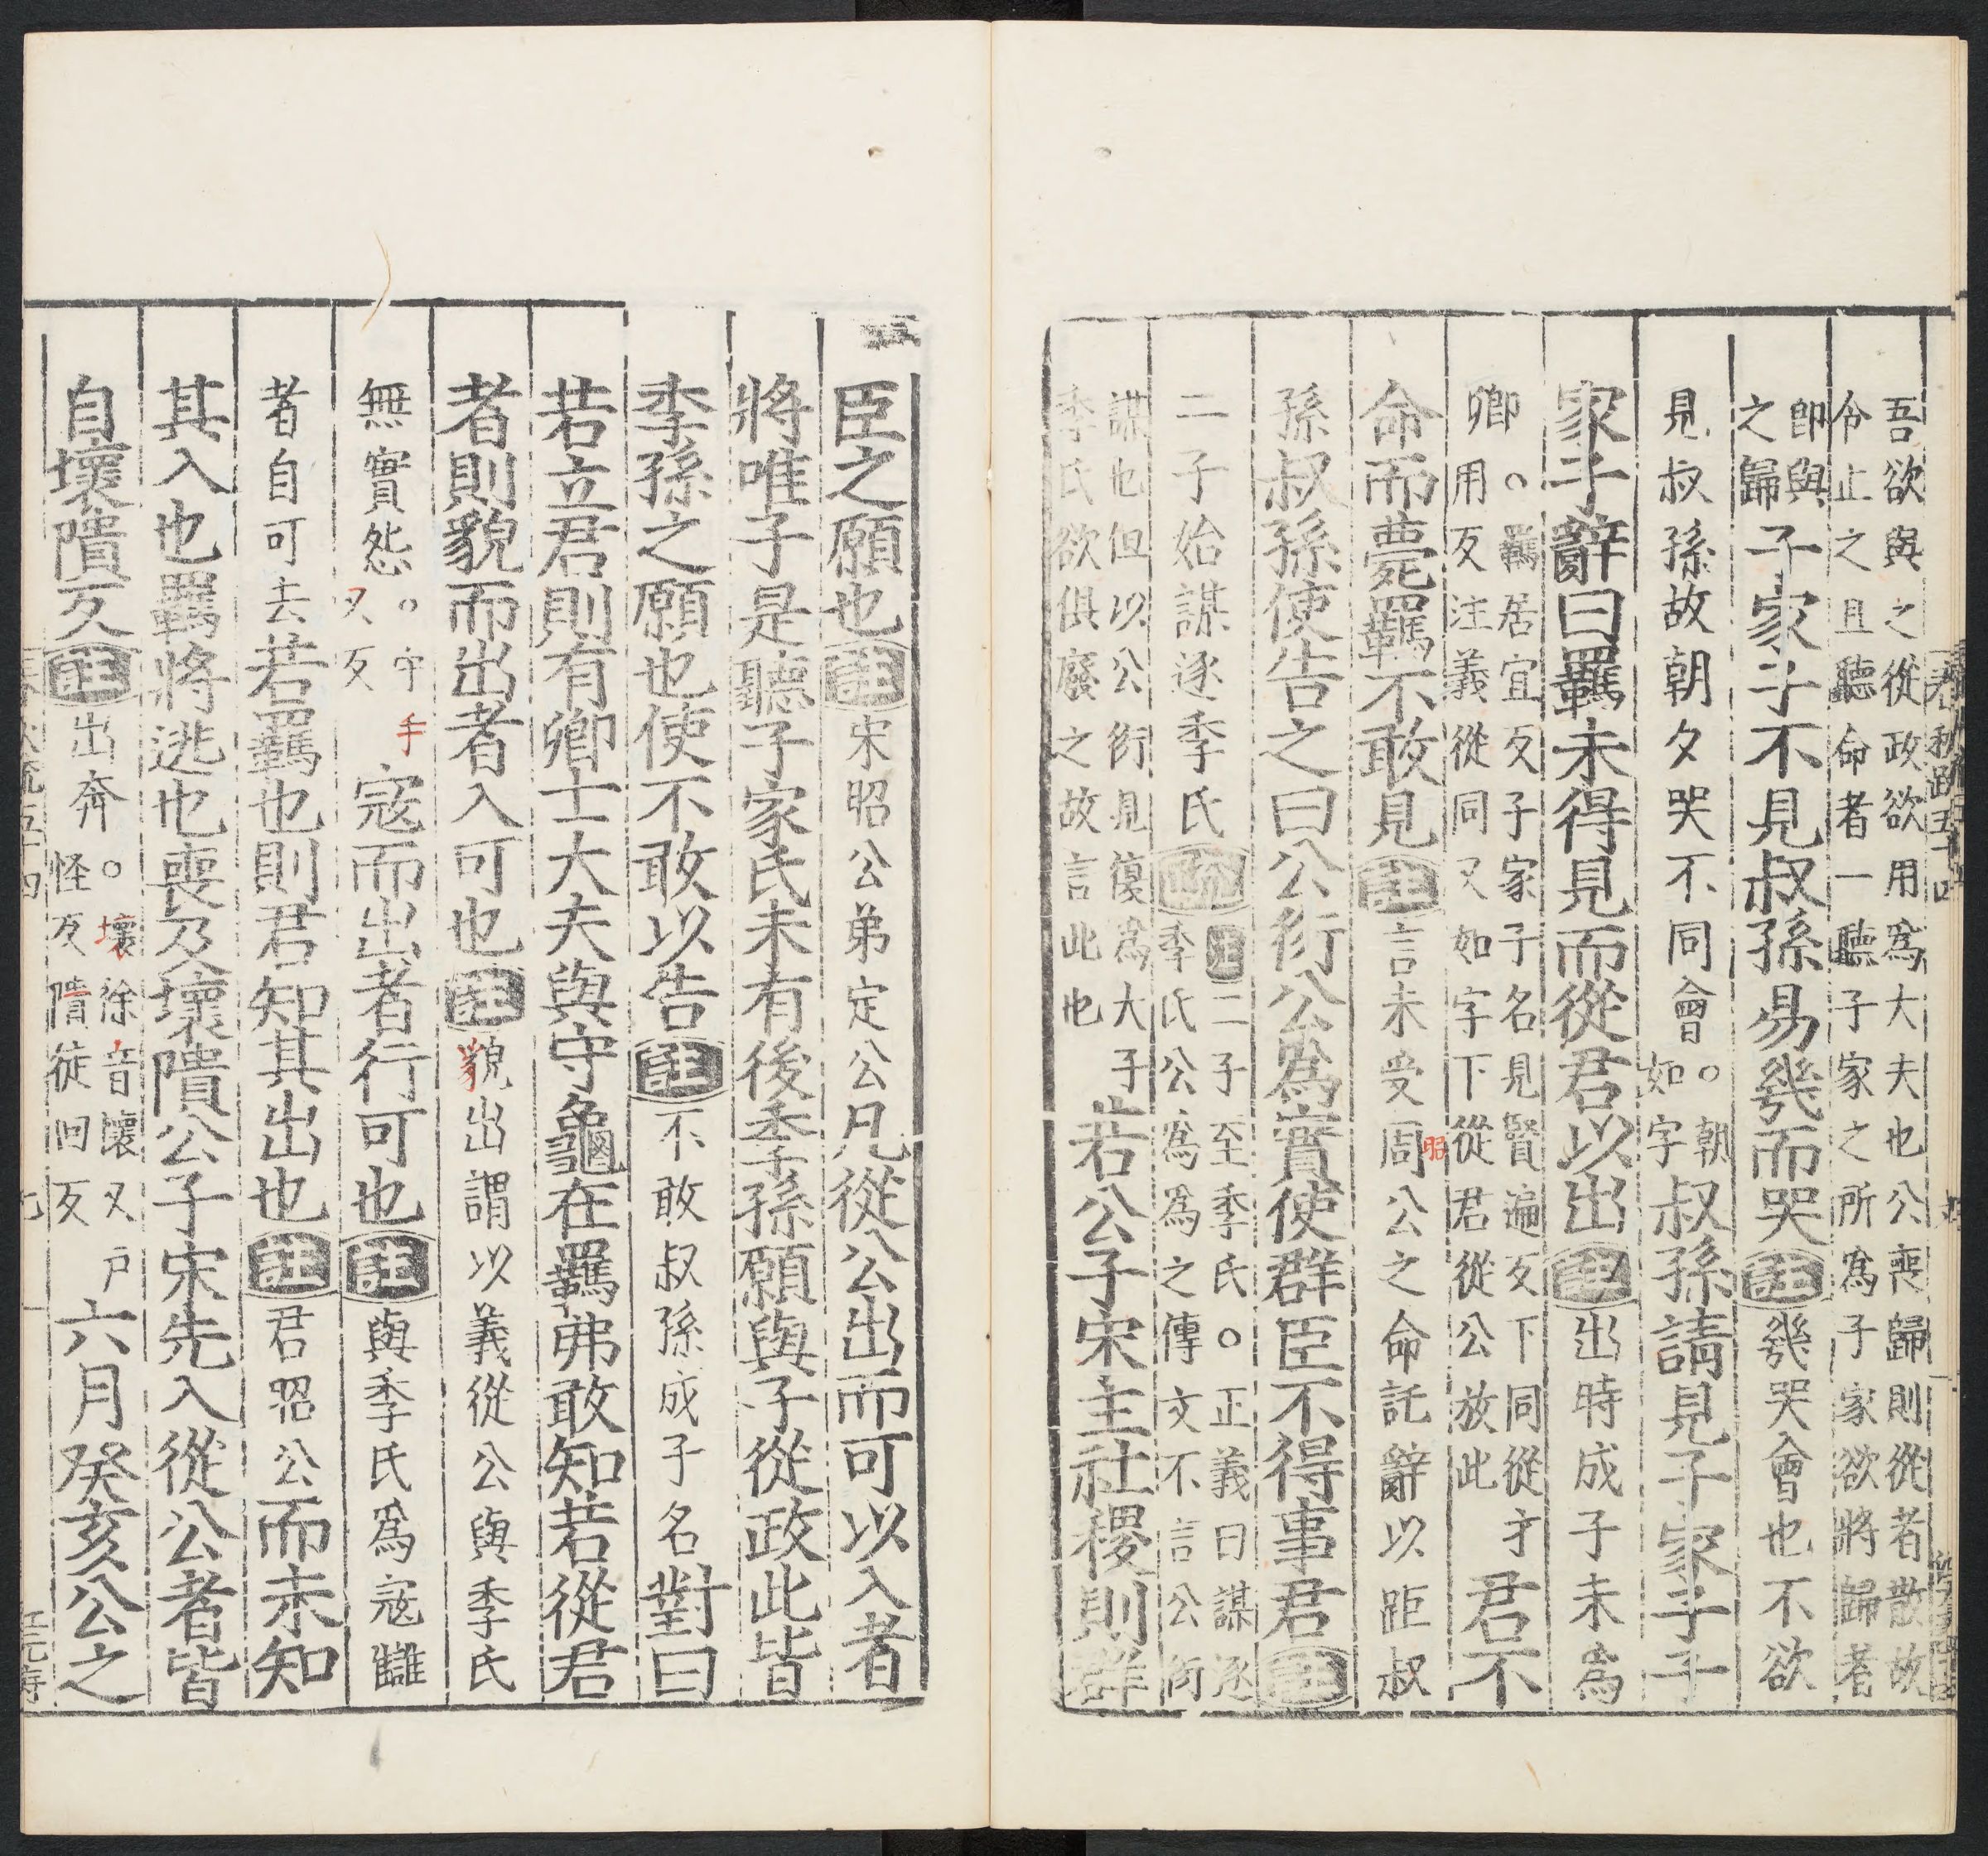 吾欲與之從政欲用爲大夫也公喪歸則從者散故
令止之且聽命者一聽子家之所爲子家欲將歸者
卽與
之歸
子家子不見叔孫易幾而哭註幾哭會也不欲
見叔孫故朝夕哭不同會○朝
如字
叔孫請見子家子子
家子辭曰羈未得見而從君以出註出時成子未爲
卿○羈居宜反子家子名見賢遍反下同從才
用反注義從同又如字下從君從公放此
君不
命而薨羈不敢見註言未受昭周公之命託辭以距叔
孫叔孫使告之曰公衍公爲實使群臣不得事君註
二子始謀逐季氏疏
注二子至季氏○正義曰謀逐
季氏公爲爲之傳文不言公衍
謀也但以公衍見復爲大子
季氏欲俱廢之故言此也
若公子宋主社稷則群
臣之願也註宋昭公弟定公凡從公出而可以入者
將唯子是聽子家氏未有後季孫願與子從政此皆
季孫之願也使不敢以告註不敢叔孫成子名對曰
若立君則有卿士大夫與守龜在羈弗敢知若從君
者則貌而出者入可也註貌出謂以義從公與季氏
無實怨○守手
又反
寇而出者行可也註與季氏爲寇讎
者自可去若羈也則君知其出也註君昭公而未知
其入也羈將逃也喪及壞隤公子宋先入從公者皆
自壞隤反註出奔○壞徐音懷又戶
怪反隤徒回反
六月癸亥公之